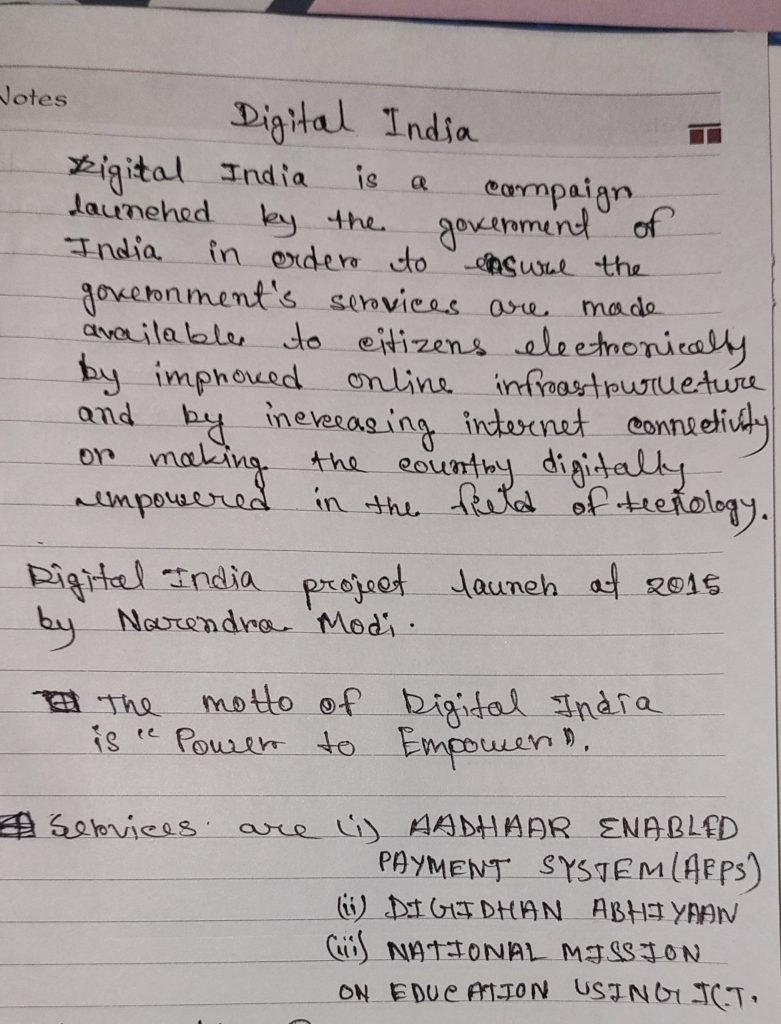 Notes
Digital India
Digital India is a campaign
launched by the government of
India in order to ensure the
government's services are made
available to citizens electronically
by improved online infrastructure
and by increasing internet connectivity
or making the country digitally
empowered in the field of technology.
Digital India project launch at 2015
by Narendra Modi.
The motto of Digital India
is "Power to Empower".
Services are (i) AADHAAR ENABLED
PAYMENT SYSTEM (AEPS)
(ii) DIGIDHAN ABHIYAAN
(iii) NATIONAL MISSION
ON EDUCATION USING ICT.